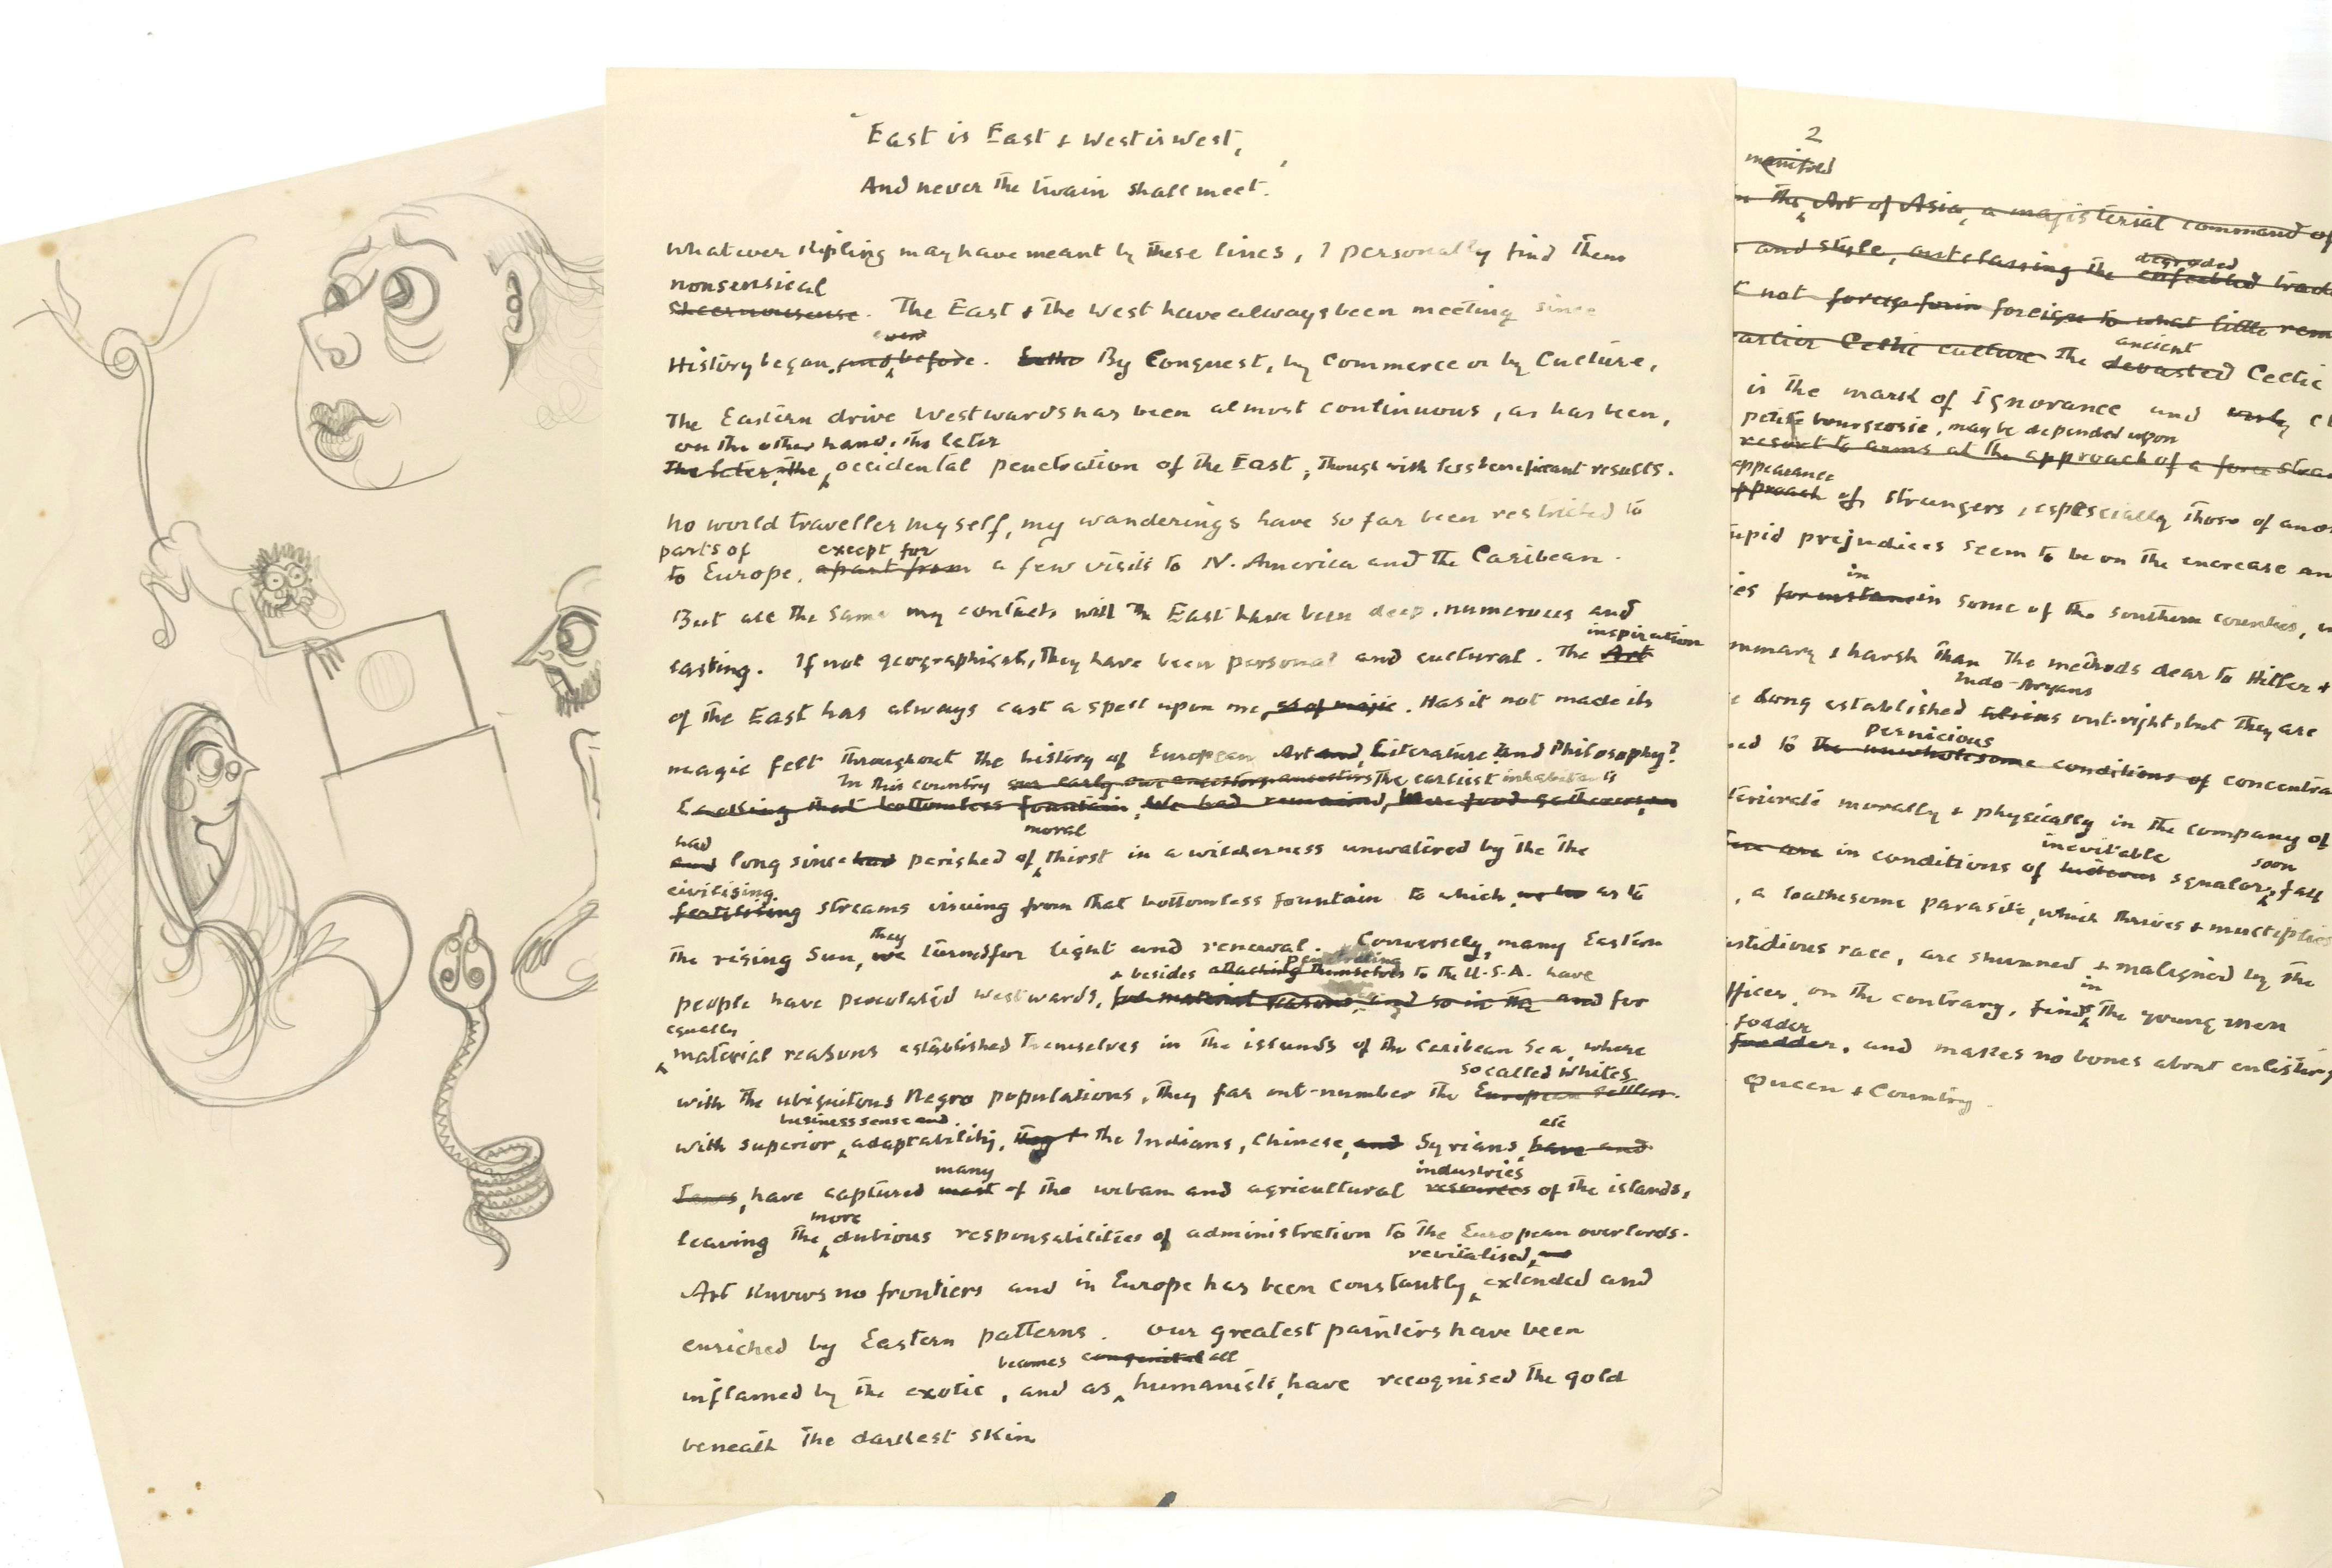 "East is East & West is West,
And never the twain shall meet."
Whatever Kipling may have meant by these lines, I personally find them
nonsensical
sheer nonsense. The East & the West have always been meeting since
even
History began, and before. By Conquest, by Commerce or by Culture,
The Eastern drive Westwards has been almost continuous, as has been,
on the other hand, the later
The later, the occidental penetration of the East, though with less beneficent results.
No world traveller myself, my wanderings have so far been restricted to
parts of except for
to Europe, apart from a few visits to N. America and the Caribean.
But all the same my contacts with the East have been deep, numerous and
inspiration
lasting. If not geographical, they have been personal and cultural. The Art
of the East has always cast a spell upon me, as of magic. Has it not made its
magic felt throughout the history of European Art and, Literature and Philosophy?
In this country our early own ancestors ancestors the earliest inhabitants
Lacking that bottomless fountain, we had remained, mere food gatherers,
moral
had
and long since had perished of thirst in a wilderness unwatered by the the
civilising
fertilising streams issuing from that bottomless fountain to which, as to
they
the rising Sun, we turned for light and renewal. Conversely, many Eastern
penetrating
& besides attaching themselves to the U.S.A. have
people have percolated westwards, for material reasons, and so in the and for
equally
material reasons established themselves in the islands of the Caribean Sea, where
so called Whites
with the ubiquitous Negro populations, they far out-number the European settlers.
business sense and etc
with superior adaptability, they & the Indians, Chinese, and Syrians, have and
many industries
Jews, have captured most of the urban and agricultural resources of the islands,
more
leaving the dubious responsabilities of administration to the European overlords.
revitalised, and
Art knows no frontiers and in Europe has been constantly extended and
enriched by Eastern patterns. Our greatest painters have been
becomes congenital all
inflamed by the exotic, and as humanists, have recognised the gold
beneath the darkest skin
2
manifold
in the Art of Asia, a magisterial command of
degraded
and style, outclassing the enfeebled
not foreign to what little
ancient
earlier Celtic culture the devasted Celtic
is the mark of Ignorance and
petite bourgeosie, may be depended upon
resort to arms at the approach of a
appearance
approach of strangers, especially those of
prejudices seem to be on the encrease
in
for instance in some of the southern counties,
& harsh than the methods dear to Hitler &
Indo-Aryans
long established aliens out-right, but they are
pernicious
to the unwholesome conditions of
morally & physically in the company of
inevitable soon
are in conditions of hideous squalor, fall
, a loathesome parasite, which thrives & multiplies
race, are shunned & maligned by the
in
on the contrary, finds the young men
fodder
foedder, and makes no bones about enlisting
Queen & Country.